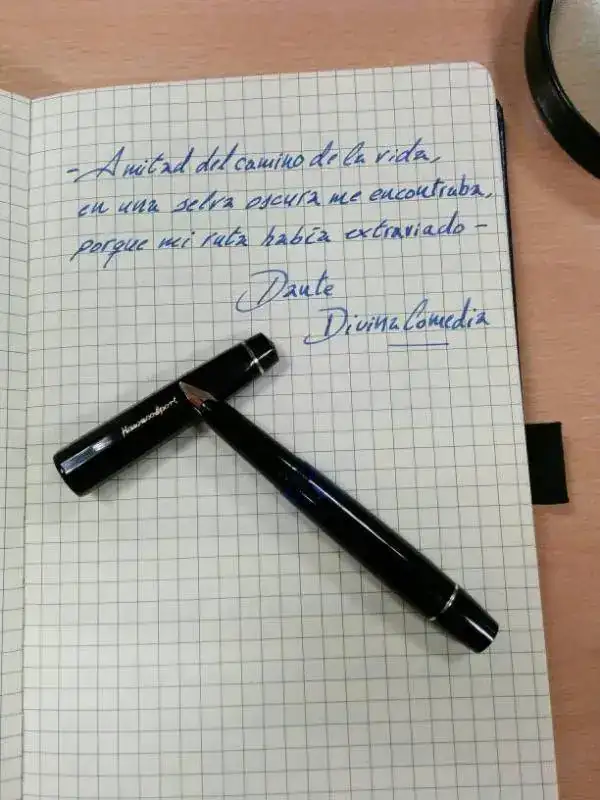 - A mitad del camino de la vida,
en una selva oscura me encontraba,
porque mi ruta había extraviado -
Dante
Divina Comedia